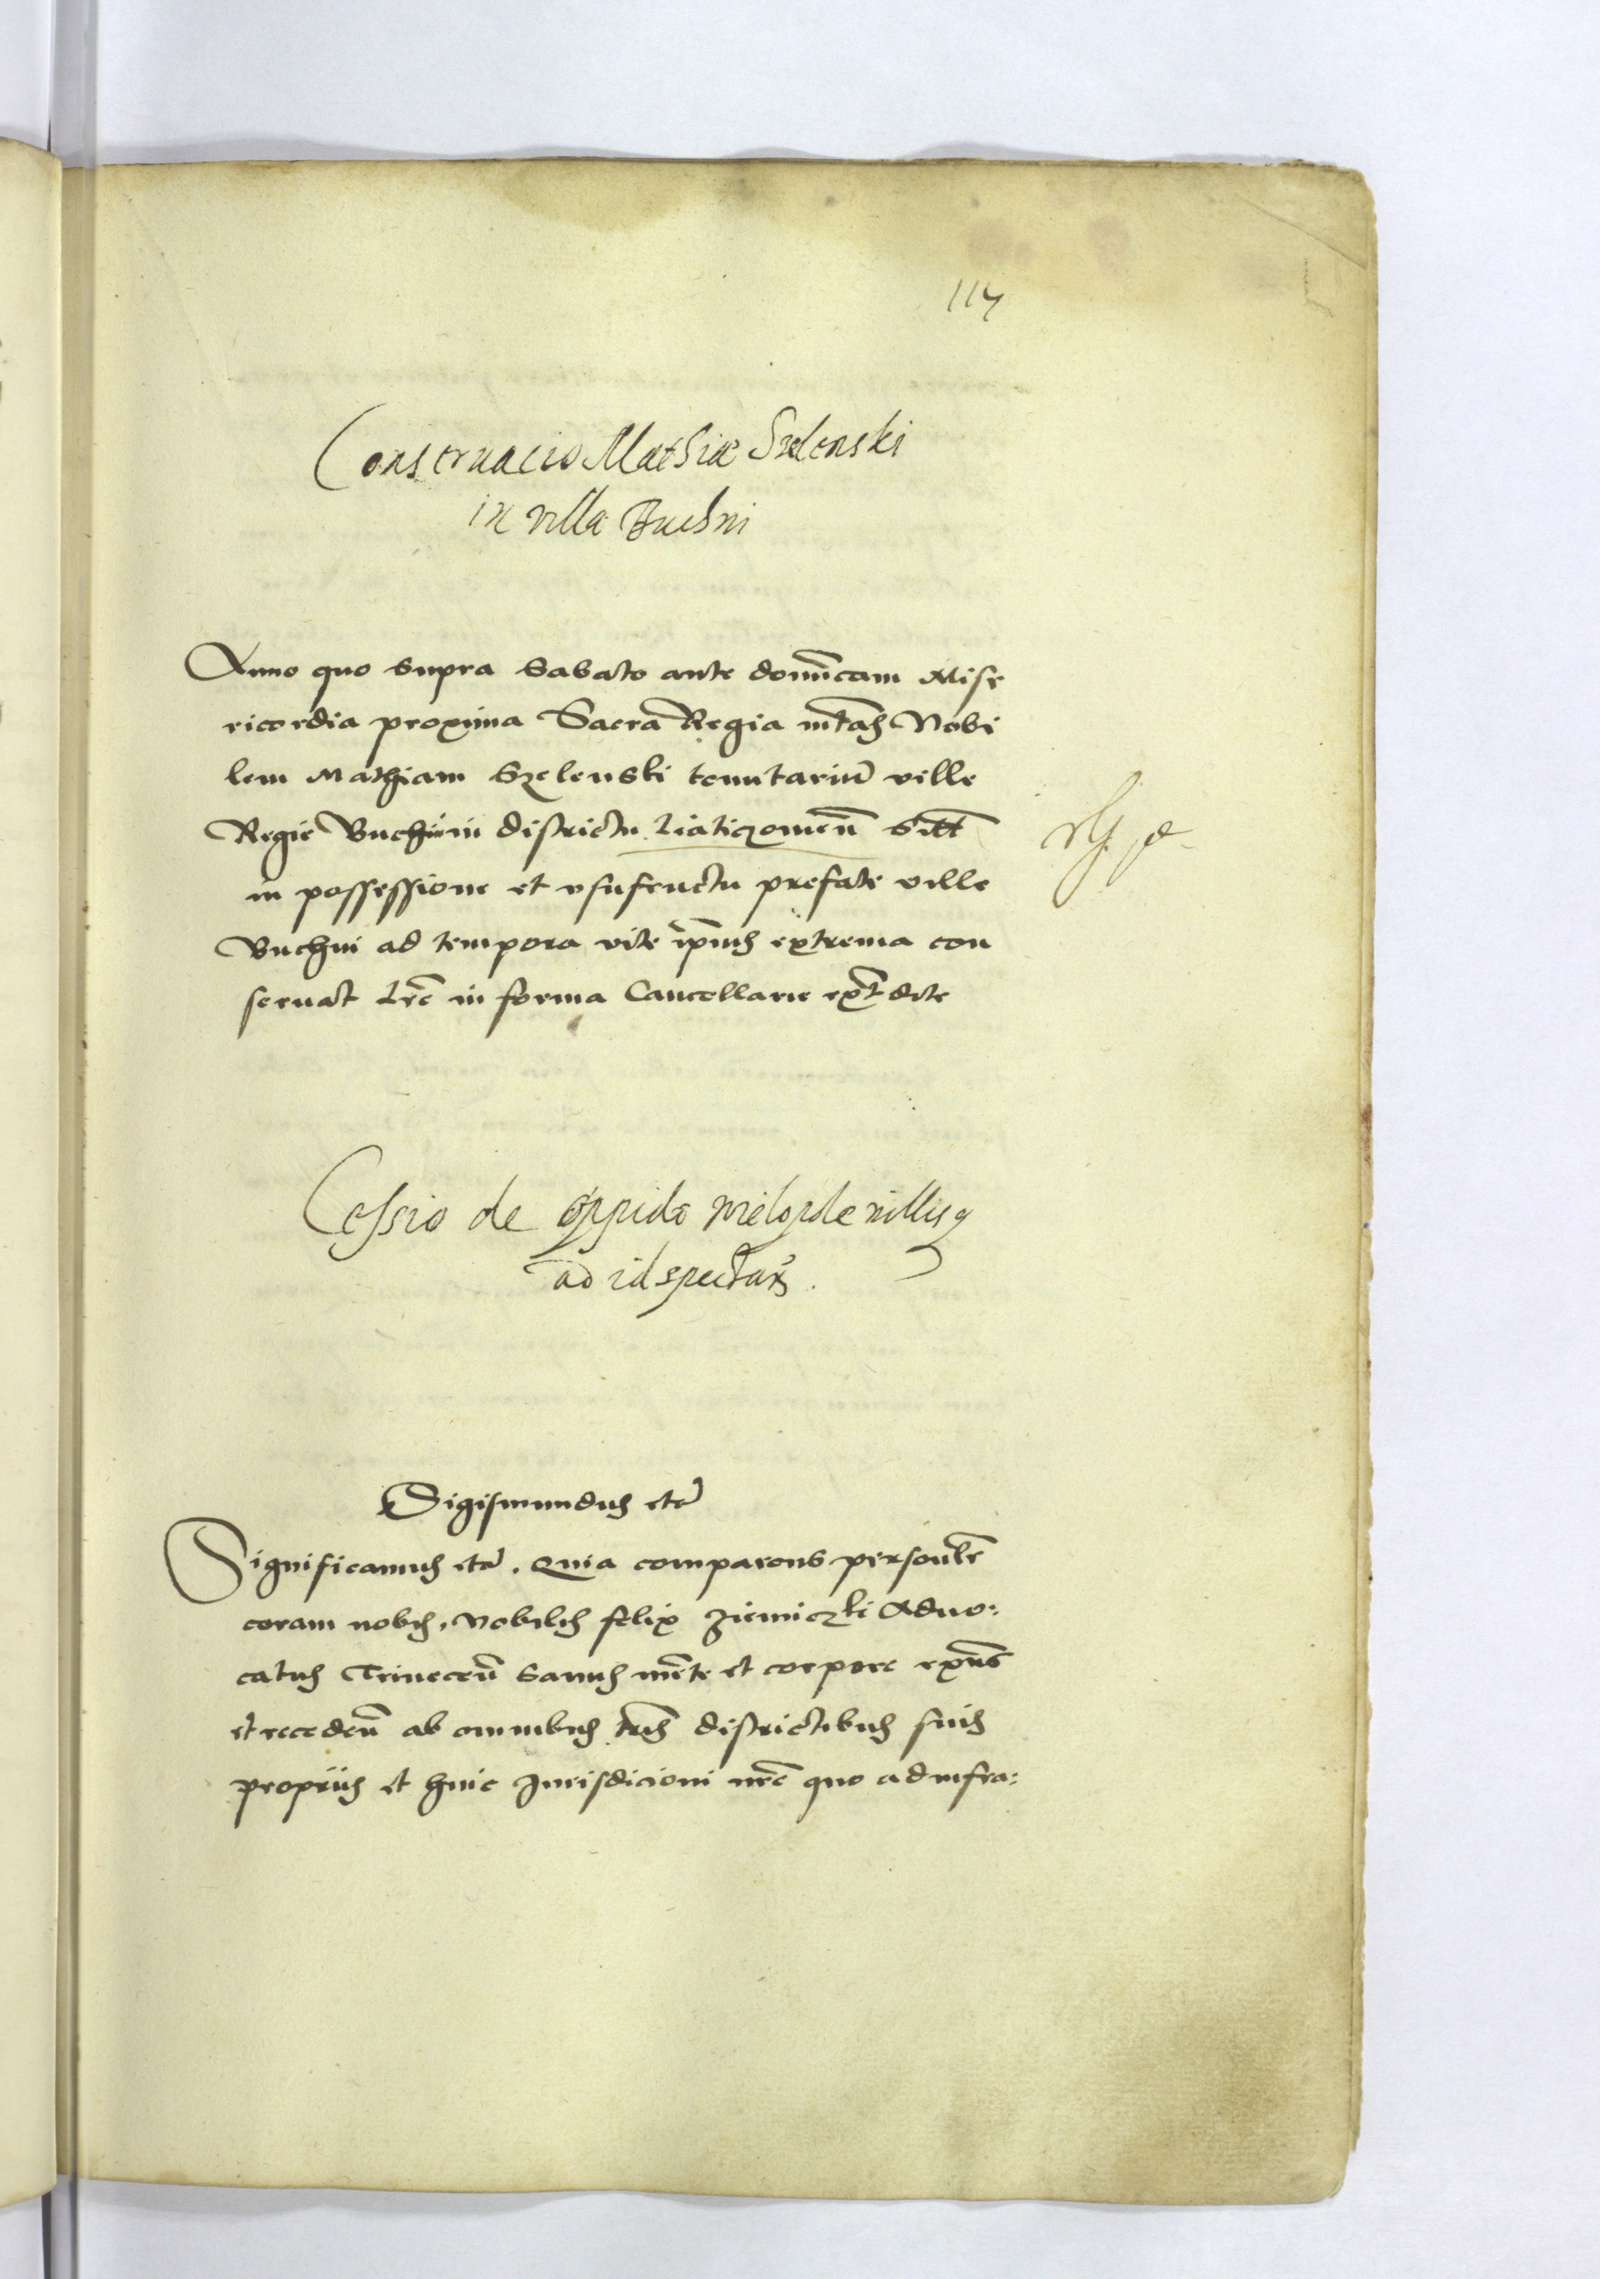 117
Conseruacio Mathiæ Szelenski
in villa Buchni
Anno quo supra Sabato ante dominicam Mise
ricordia proxima Sacra Regia mtas Nobi
lem Mathiam Szelenski tenutarium ville
Regie Buchni in districtu Liaticzowien̄ Sitt
in possessione et vsufructu prefate ville
Buchni ad tempora vite ipius extrema con
seruat Lre in forma Cancellarie ext dite
Cessio de oppido villisq
ad id spectan
Sigismundus etc
Significamus etc. Quia comparens personlr
coram nobis, Nobilis felix Ziemiczki Aduo:
catus sanus mente et corpore exns
et receden̄ ab omnibus tris districtibus suis
propriis et huic Jurisdicioni nre quo ad infra: